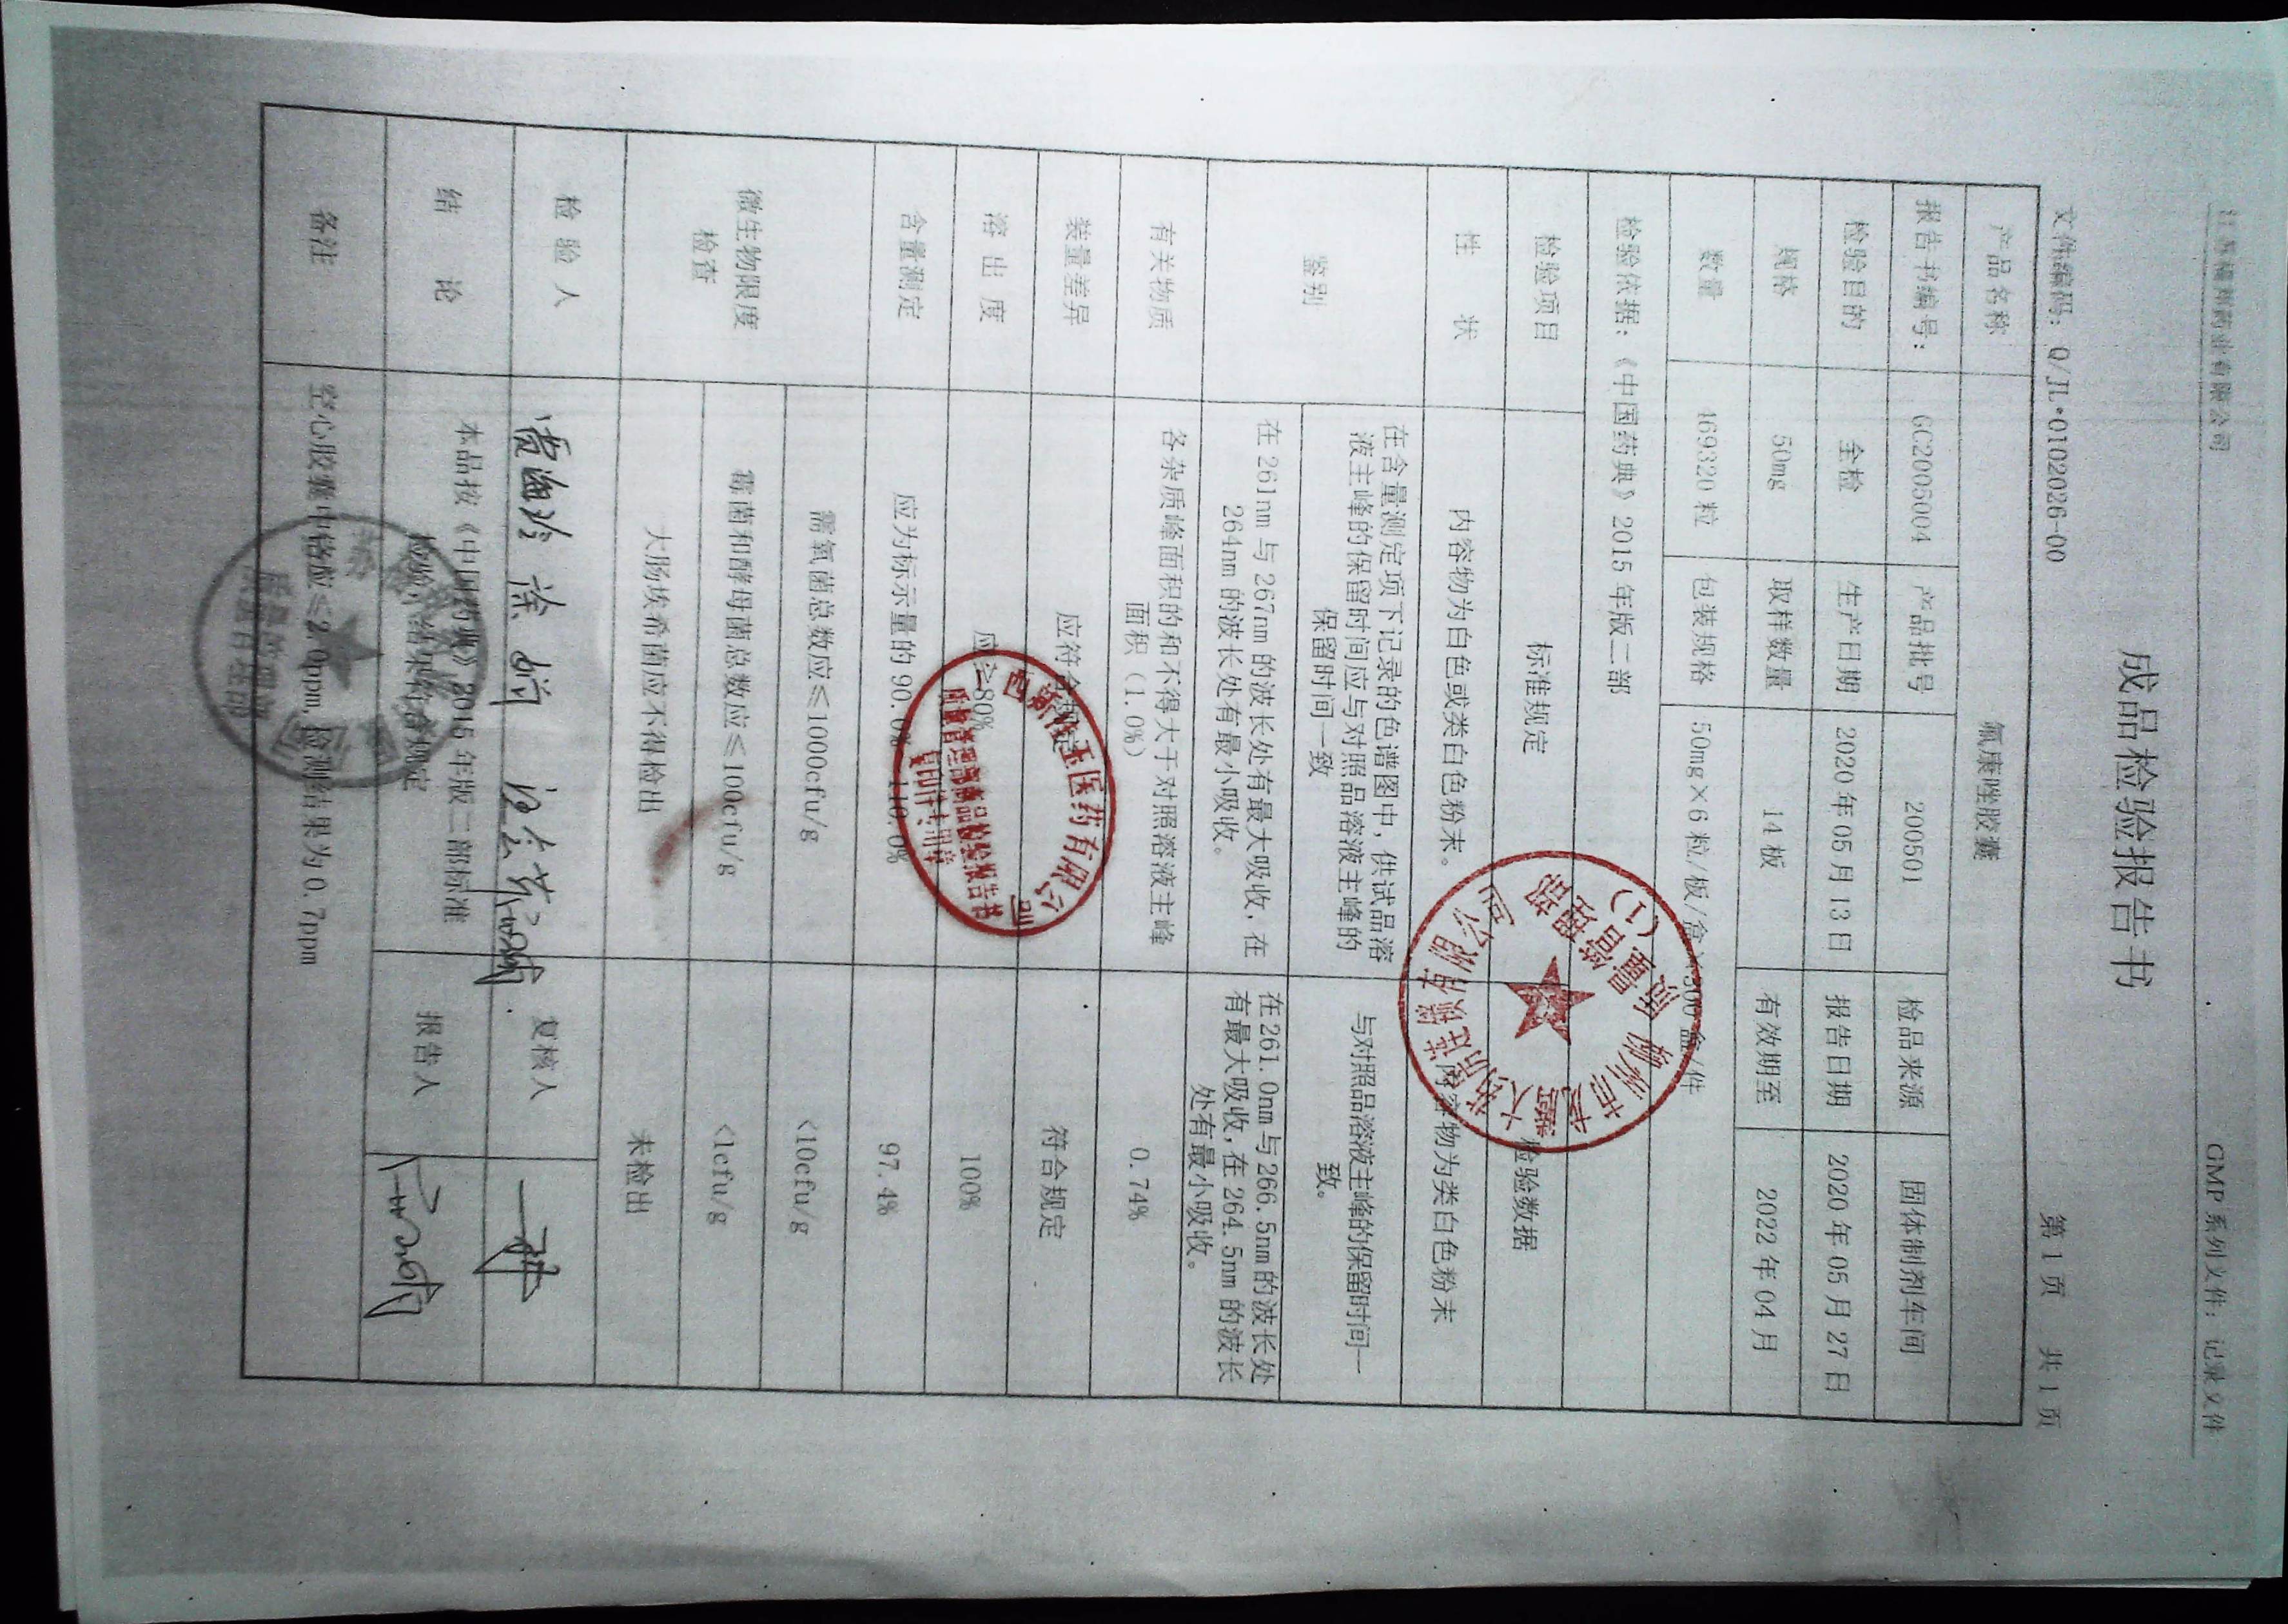 药业有限公司 GMP 系列文件：记录文件
成品检验报告书
文件编码：Q/JL·0102026-00 第 1 页 共 1 页
产品名称 氟康唑胶囊
报告书编号： GC2005004 产品批号 200501 检品来源 固体制剂车间
检验目的 全检 生产日期 2020 年 05 月 13 日 报告日期 2020 年 05 月 27 日
规格 50mg 取样数量 14 板 有效期至 2022 年 04 月
数量 169320 粒 包装规格 50mg×6 粒/板/盒×300 盒/件
检验依据：《中国药典》2015 年版二部
检验项目 标准规定 检验数据
性 状 内容物为白色或类白色粉末。 内容物为类白色粉末
鉴别
在含量测定项下记录的色谱图中，供试品溶
液主峰的保留时间应与对照品溶液主峰的
保留时间一致
与对照品溶液主峰的保留时间一
致。
在 261nm 与 267nm 的波长处有最大吸收，在
264nm 的波长处有最小吸收。
在 261.0nm 与 266.5nm 的波长处
有最大吸收，在 264.5nm 的波长
处有最小吸收。
有关物质
各杂质峰面积的和不得大于对照溶液主峰
面积（1.0%）
0.74%
装量差异 应符合规定 符合规定
溶 出 度 应≥80% 100%
含量测定 应为标示量的 90.0%～110.0% 97.4%
微生物限度
检查
需氧菌总数应≤1000cfu/g <10cfu/g
霉菌和酵母菌总数应≤100cfu/g <1cfu/g
大肠埃希菌应不得检出 未检出
检 验 人 复核人
结 论
本品按《中国药典》2015 年版二部标准
检验，结果符合规定
报告人
备注 空心胶囊中铬应≤2.0ppm，检测结果为 0.7ppm
医药有限公司
质量管理部药品检验报告书
复印件专用章
大药房连锁有限公司
质量管理部
(1)